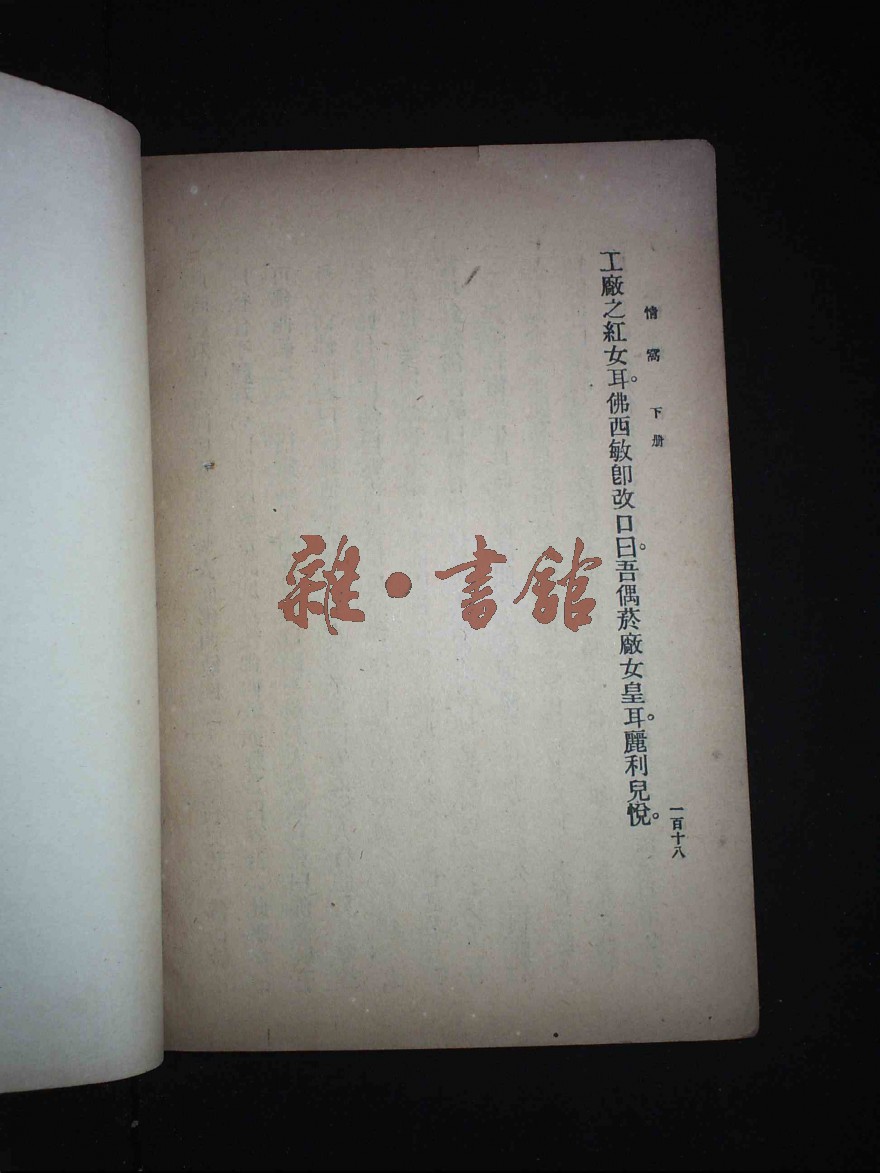 情窩 下册
工廠之紅女耳。佛西敏卽改口曰。吾偶菸廠女皇耳。麗利兒悅。
一百十八
雜·書館